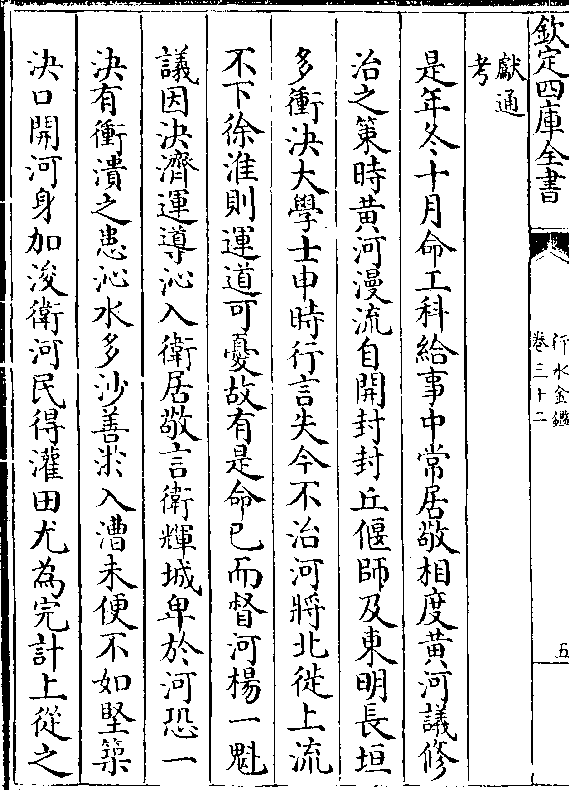 欽定四庫全書
行水金鑑
卷三十二
五
獻通
考
是年冬十月命工科給事中常居敬相度黃河議修
治之策時黃河漫流自開封封丘偃師及東明長垣
多衝決大學士申時行言失今不治河將北徙上流
不下徐淮則運道可憂故有是命已而督河楊一魁
議因決濟運導沁入衛居敬言衛輝城卑於河恐一
決有衝潰之患沁水多沙善淤入漕未便不如堅築
決口開河身加浚衛河民得灌田尤為完計上從之